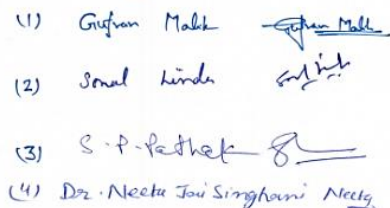 (1) Gufran Malik Gufran Malik
(2) Sonal
(3) S.P. Pathak
(4) Dr. Neeta Jai Singhani Neeta